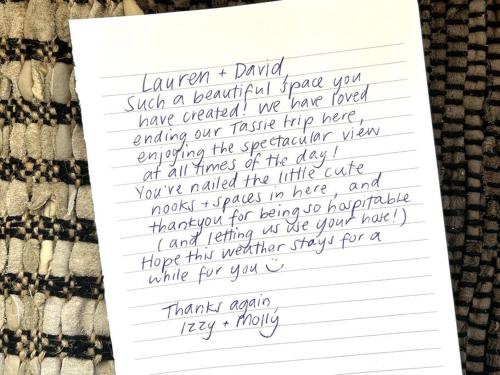 Lauren + David,
Such a beautiful space you
have created! We have loved
ending our Tassie trip here,
enjoying the spectacular view
at all times of the day!
You've nailed the little cute
nooks + spaces in here, and
thankyou for being so hospitable
(and letting us use your hose!)
Hope this weather stays for a
while for you ☺
Thanks again,
Izzy + Molly